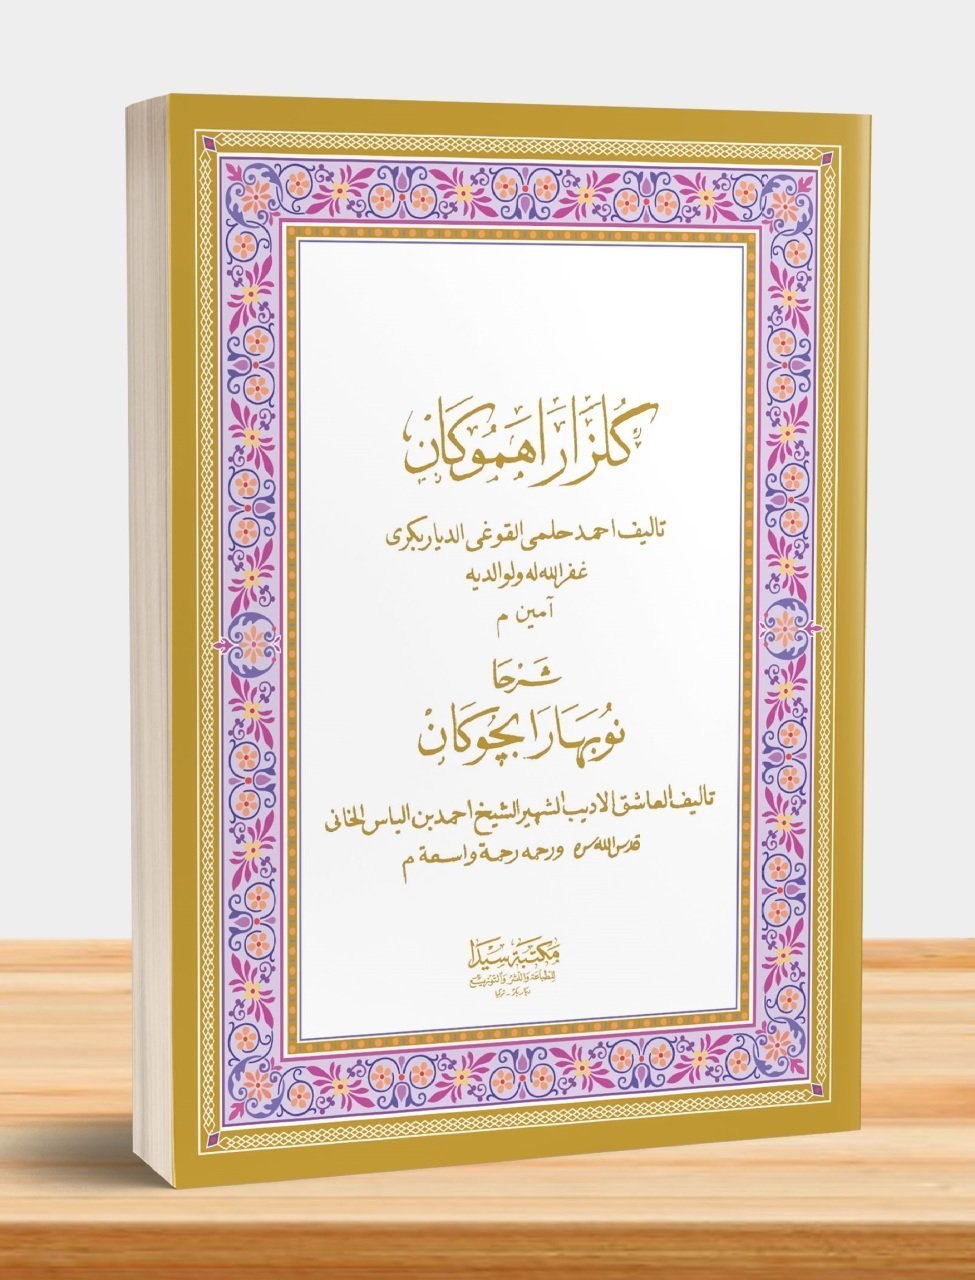 كُلزَارَا هَمُوكَانْ
تاليف احمد حلمى القوغى الدياربكرى
غفر الله له ولوالديه
آمين م
شَرْحَا
نُوبَهَارَا بچُوكَانْ
تاليف العاشق الاديب الشهير الشيخ احمد بن الياس الخانى
قدس الله سره ورحمه رحمة واسعة م
مكتبة سيدا
للطباعة والنشر والتوزيع
ديار بكر - تركيا